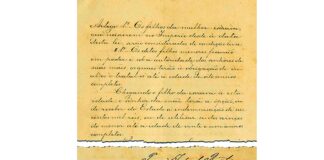 Artigo 1º. Os filhos da mulher escrava,
que nascerem no Imperio desde a data
desta lei, serão considerados de condição livre.
§ 1º. Os ditos filhos menores ficarão
em poder e sob a autoridade dos senhores de
suas mães, os quaes terão a obrigação de
crial-os e tratal-os até a idade de oito annos
completos.
Chegando o filho da escrava a esta
idade, o senhor da mãe terá a opção, ou
de receber do Estado a indemnisação de seis
centos mil réis, ou de utilisar-se dos serviços
do menor até a idade de vinte e um annos
completos.